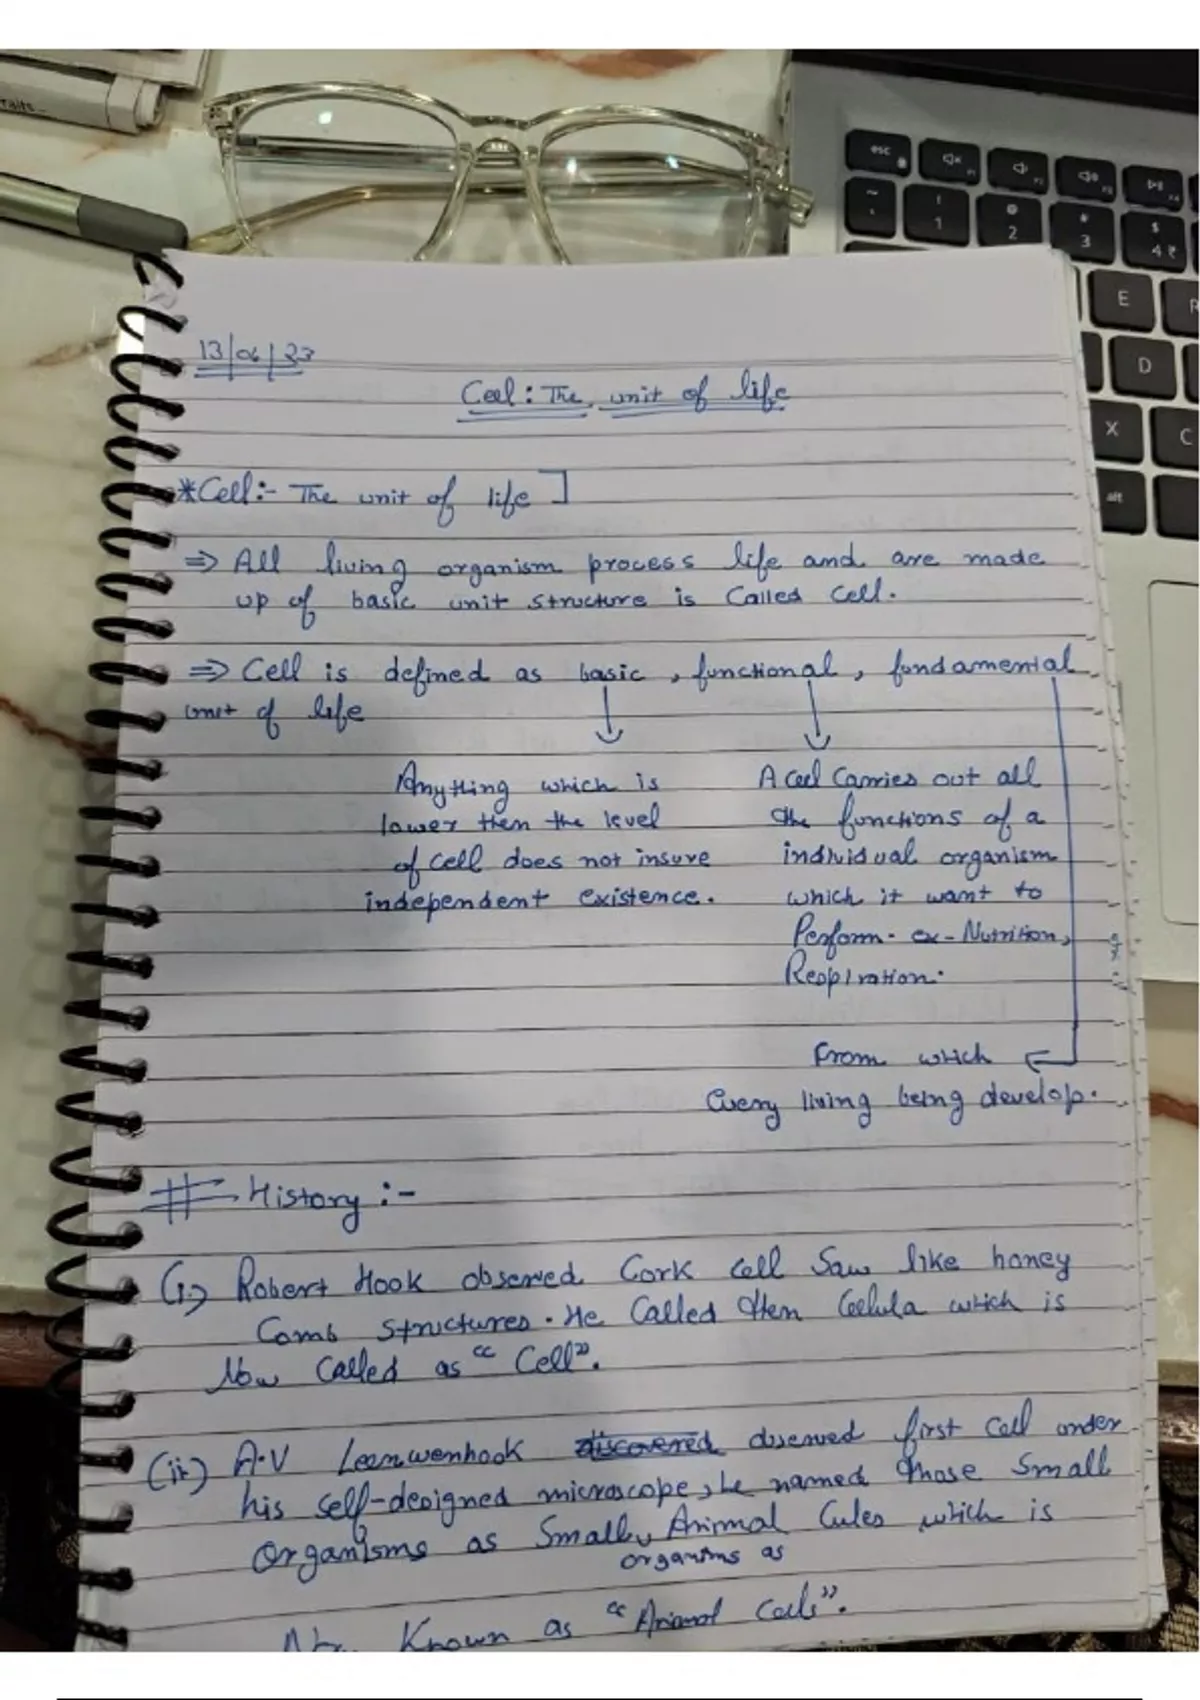 Traits...
esc
F1
F2
F3
F4
~
`
!
1
@
2
#
3
$
4 ₹
E
R
D
X
C
alt
13/06/23
Cell : The unit of life
*Cell:- The unit of life ]
⇒ All living organism process life and are made
up of basic unit structure is Called Cell.
⇒ Cell is defined as basic, functional, fundamental
unit of life
Anything which is
lower then the level
of cell does not insure
independent existence.
A cell Carries out all
the functions of a
individual organism
which it want to
Perform. ex - Nutrition,
Respiration.
From which
Every living being develop.
# History :-
(i) Robert Hook observed Cork cell Saw like honey
Comb structures. He Called them Cellula which is
Now Called as "Cell".
(ii) A.V Leenwenhook discovered observed first cell under
his self-designed microscope, he named those small
organisms as Small Animal Cules which is
organisms as
Known as "Animal Cells".